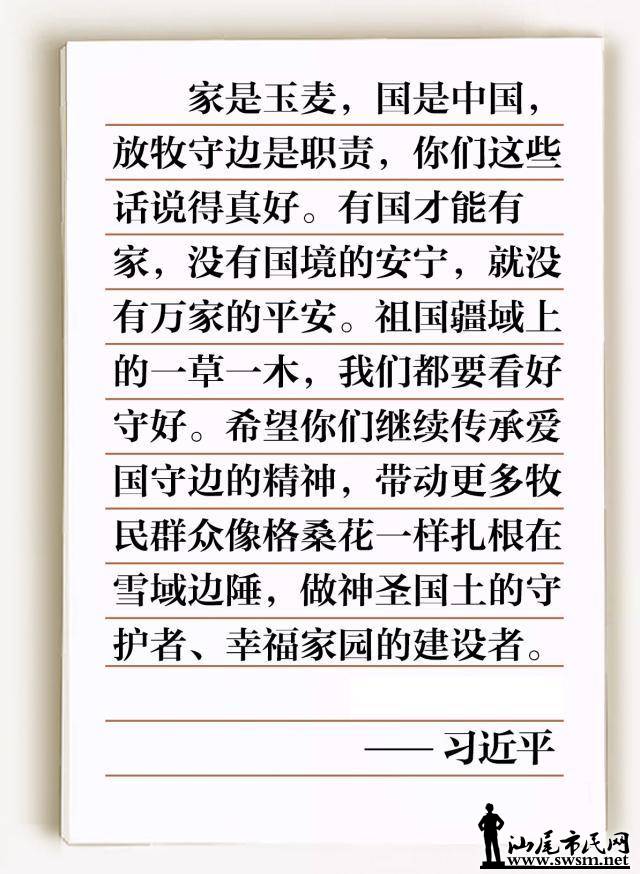 家是玉麦，国是中国，
放牧守边是职责，你们这些
话说得真好。有国才能有
家，没有国境的安宁，就没
有万家的平安。祖国疆域上
的一草一木，我们都要看好
守好。希望你们继续传承爱
国守边的精神，带动更多牧
民群众像格桑花一样扎根在
雪域边陲，做神圣国土的守
护者、幸福家园的建设者。
—— 习近平
汕尾市民网
www.swsm.net